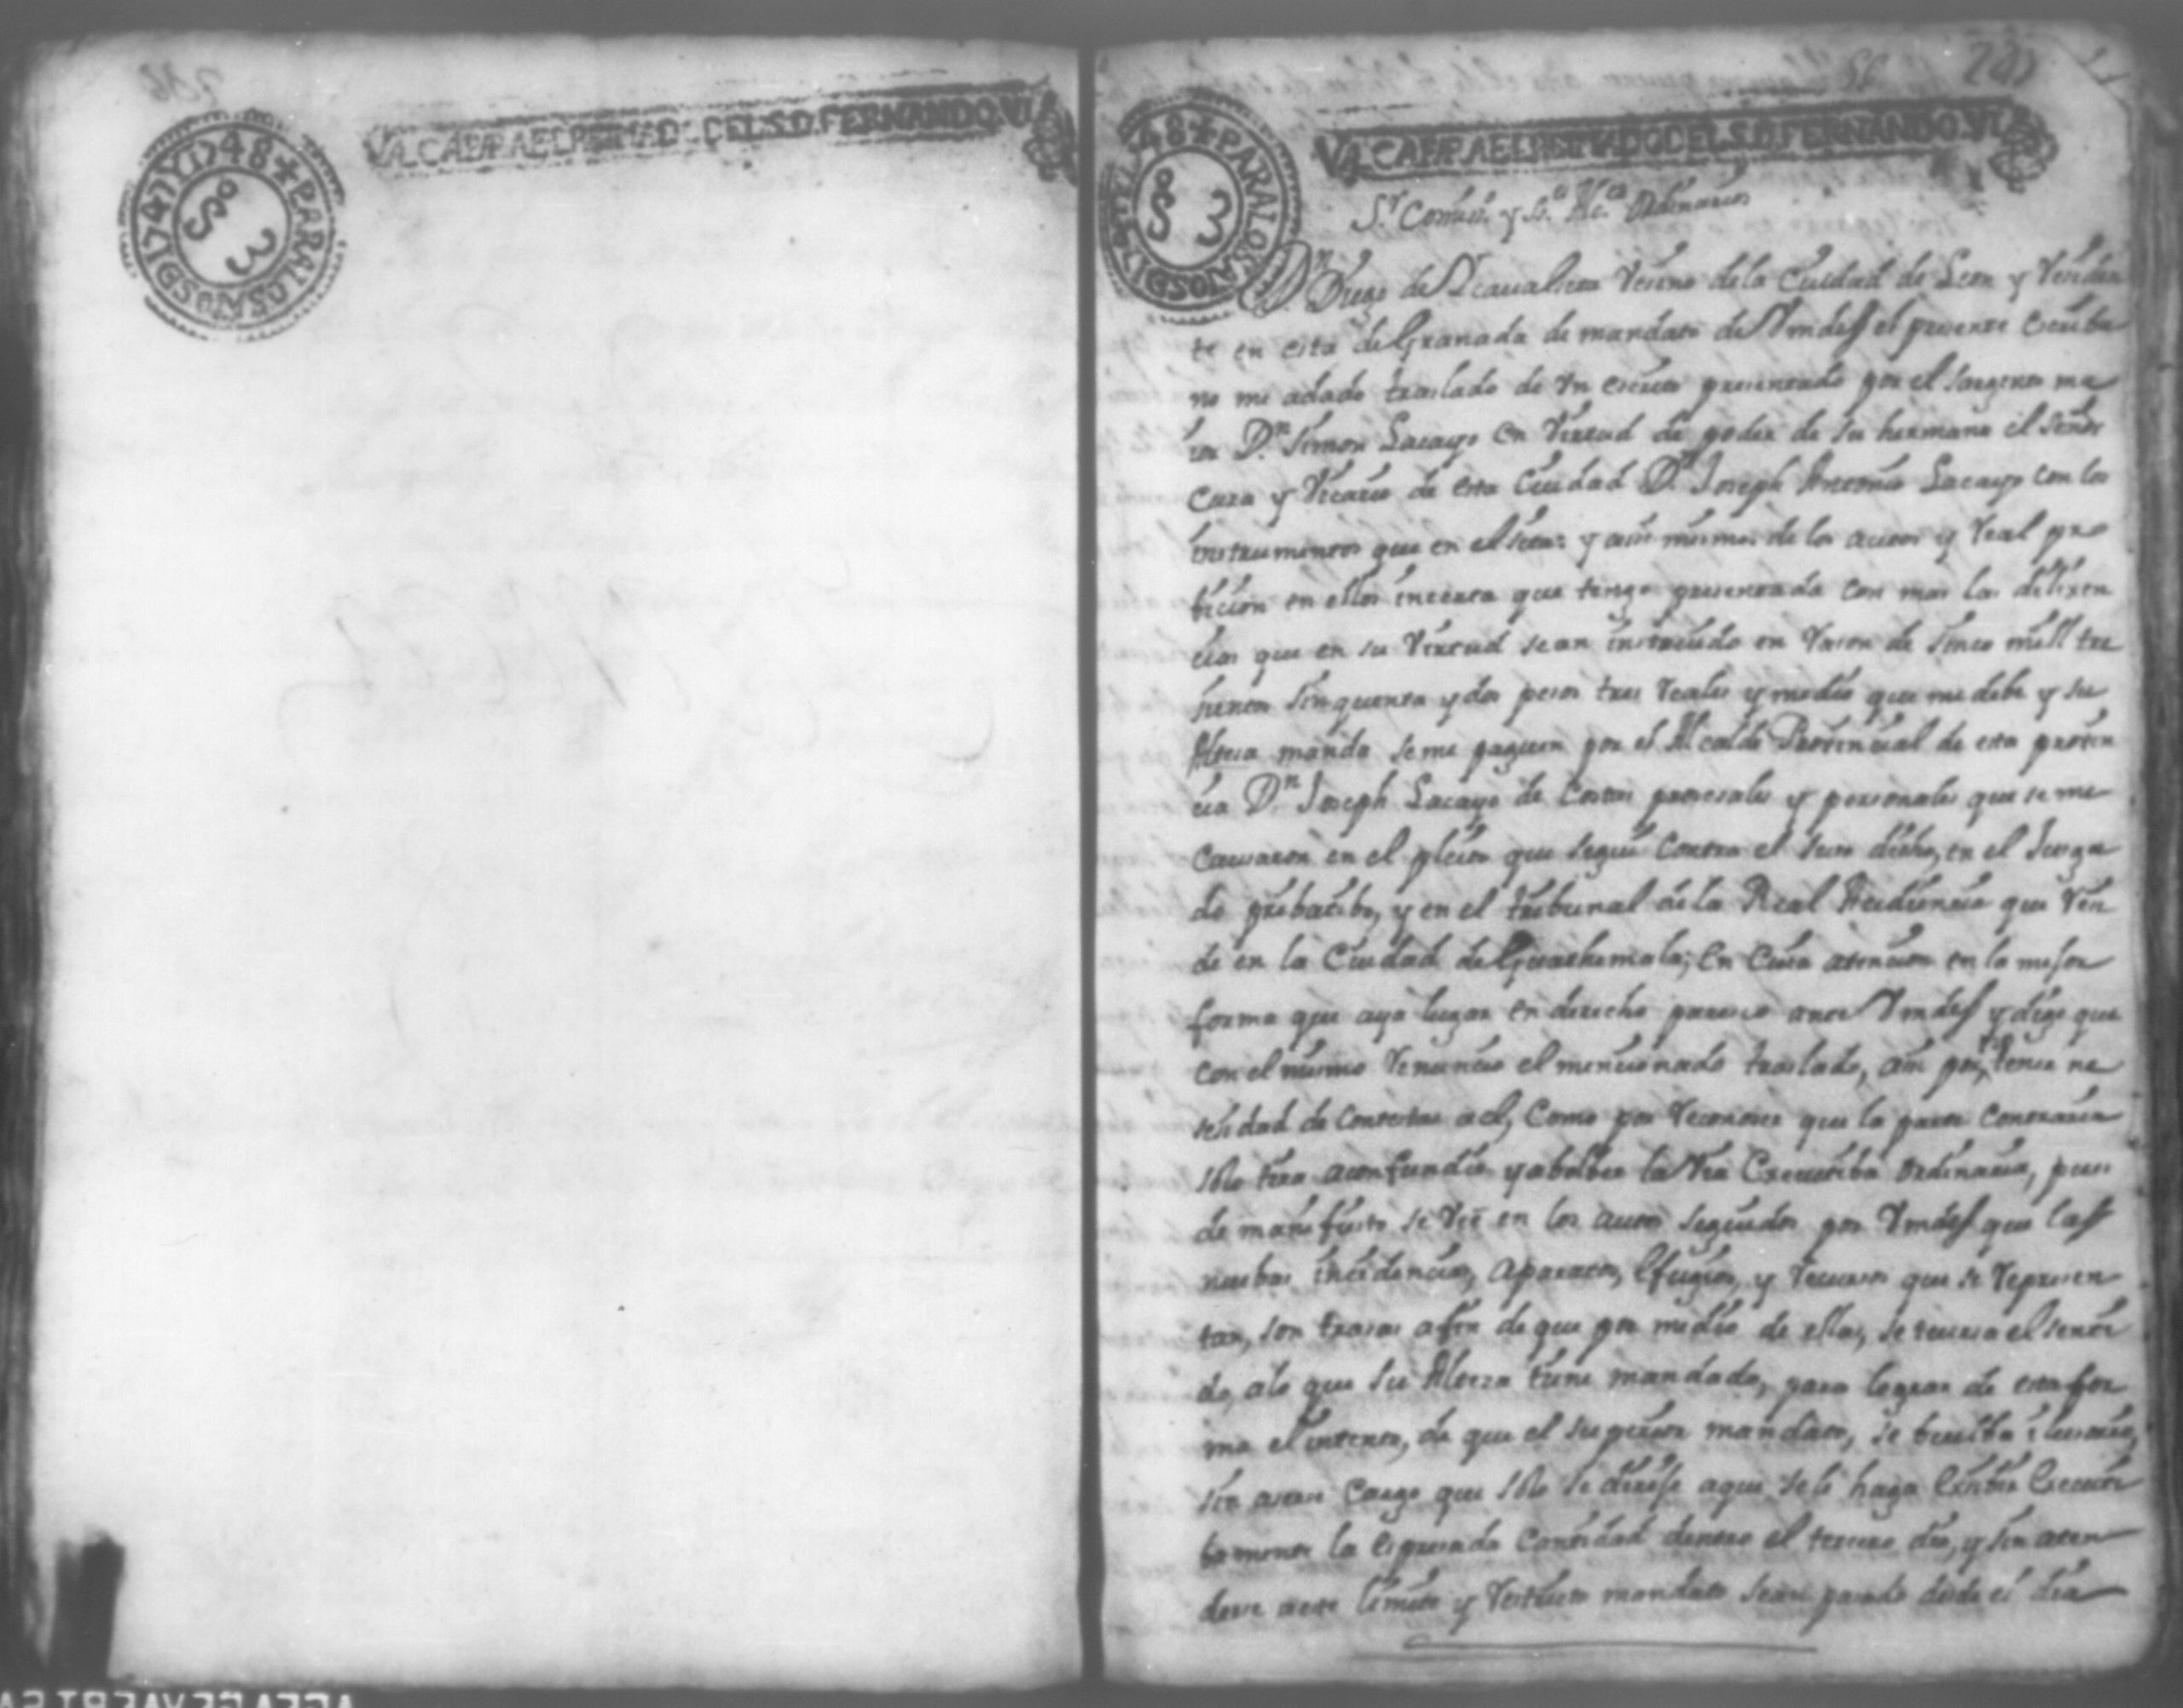 VALGA PARA EL REYNADO DEL S.D. FERNANDO. VI
1747 Y 1748 + PARA LOS AÑOS DE
S 3
VALGA PARA EL REYNADO DEL S.D. FERNANDO. VI
48 + PARA LOS AÑOS DE
S 3
Sr. Comis. y Ss. Alces. Ordinarios
Dn. Diego de vecino de la Ciudad de Leon y Residen
te en esta de Granada de mandato de Vmdes el presente escriba
no me a dado traslado de un escrito presentado por el Sargento ma
ior Dn. Simon Lacayo en virtud de poder de su hermano el Señor
Cura y Vicario de esta Ciudad Dn. Joseph Antonio Lacayo con los
instrumentos que en el sita: y asi mismo de los autos y Real pro
bicion en ellos incerta que tengo presentada con mas las dilixen
cias que en su virtud se an instruido en rason de sinco mill tre
sientos sinquenta y dos pesos tres reales y medio que me debe y su
Alteza manda se me paguen por el Alcalde Provincial de esta provin
cia Dn. Joseph Lacayo de costas procesales y personales que se me
causaron en el pleito que segui contra el suso dicho, en el Jusga
do pribatibo, y en el tribunal de la Real Audiencia que resi
de en la Ciudad de Guathemala; en cuia atencion en la mejor
forma que aya lugar en derecho paresco ante Vmdes y digo que
con el mismo renuncio el mencionado traslado, asi por tener ne
sesidad de contestar a el, como por reconocer que la parte contraria
solo tira a confundir y a bolber la via executiba ordinaria, pues
de manifiesto se ve en los autos seguidos por Vmdes que las
nuebas incidencias, aparatos, efugios, y recursos que se represen
tan, son trasas a fin de que por medio de ellas, se tuersa el senti
do, a lo que su Alteza tiene mandado, para lograr de esta for
ma el intento, de que el superior mandato, se buelba ilusorio,
sin aserse cargo que solo se dirije a que se le haga exibir executi
bamente la expresada cantidad dentro el tercero dia, y sin aten
derse a este limite y restricto mandato se an pasado desde el dia